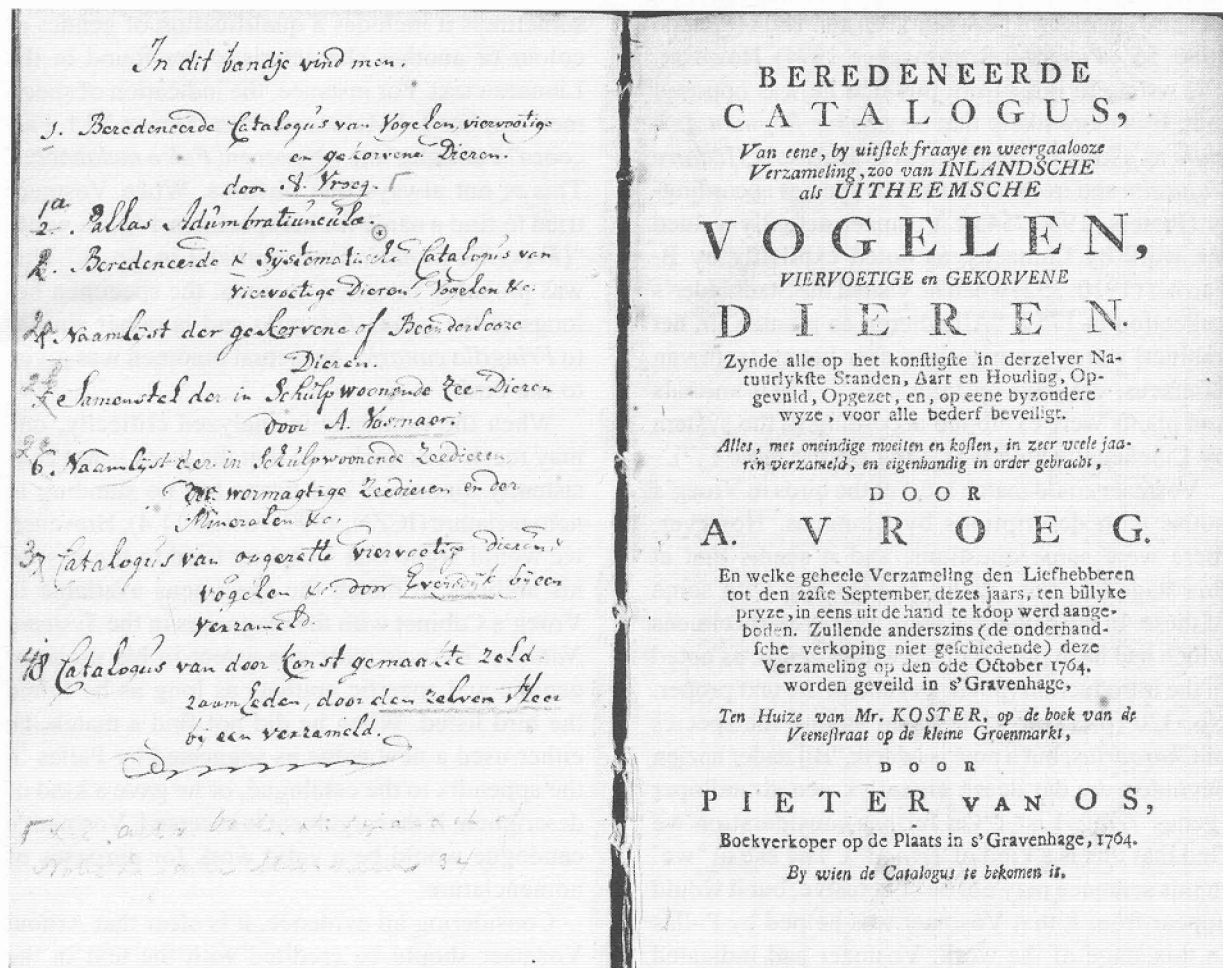 In dit bandje vind men.
1. Beredeneerde Catalogus van Vogelen, viervoetige
en gekorvene Dieren.
door A. Vroeg.
1a
2. Pallas Adumbratiunculæ.
2. Beredeneerde & Systematische Catalogus van
viervoetige Dieren, Vogelen &c.
2a Naamlyst der gekorvene of Beenderlooze
Dieren.
2b Samenstel der in Schulpwoonende Zee-Dieren
door A. Vosmaer.
6. Naamlyst der in Schulpwoonende Zeedieren
der wormagtige Zeedieren en der
Mineralen &c.
3 Catalogus van opgezette viervoetige dieren,
vogelen &c. door Eversdyk byeen
verzameld.
48 Catalogus van door konst gemaakte zeld-
zaamheden, door den zelven Heer
bij een verzameld.
BEREDENEERDE
CATALOGUS,
Van eene, by uitstek fraaye en weergaalooze
Verzameling, zoo van INLANDSCHE
als UITHEEMSCHE
VOGELEN,
VIERVOETIGE en GEKORVENE
DIEREN.
Zynde alle op het konstigste in derzelver Na-
tuurlykste Standen, Aart en Houding, Op-
gevuld, Opgezet, en, op eene byzondere
wyze, voor alle bederf beveiligt.
Alles, met oneindige moeiten en kosten, in zeer veele jaa-
ren verzameld, en eigenhandig in order gebracht,
DOOR
A. VROEG.
En welke geheele Verzameling den Liefhebberen
tot den 22ste September dezes jaars, ten billyke
pryze, in eens uit de hand te koop werd aange-
boden. Zullende anderszins (de onderhand-
sche verkoping niet geschiedende) deze
Verzameling op den 6de October 1764.
worden geveild in s'Gravenhage,
Ten Huize van Mr. KOSTER, op de hoek van de
Veenestraat op de kleine Groenmarkt,
DOOR
PIETER VAN OS,
Boekverkoper op de Plaats in s'Gravenhage, 1764.
By wien de Catalogus te bekomen is.